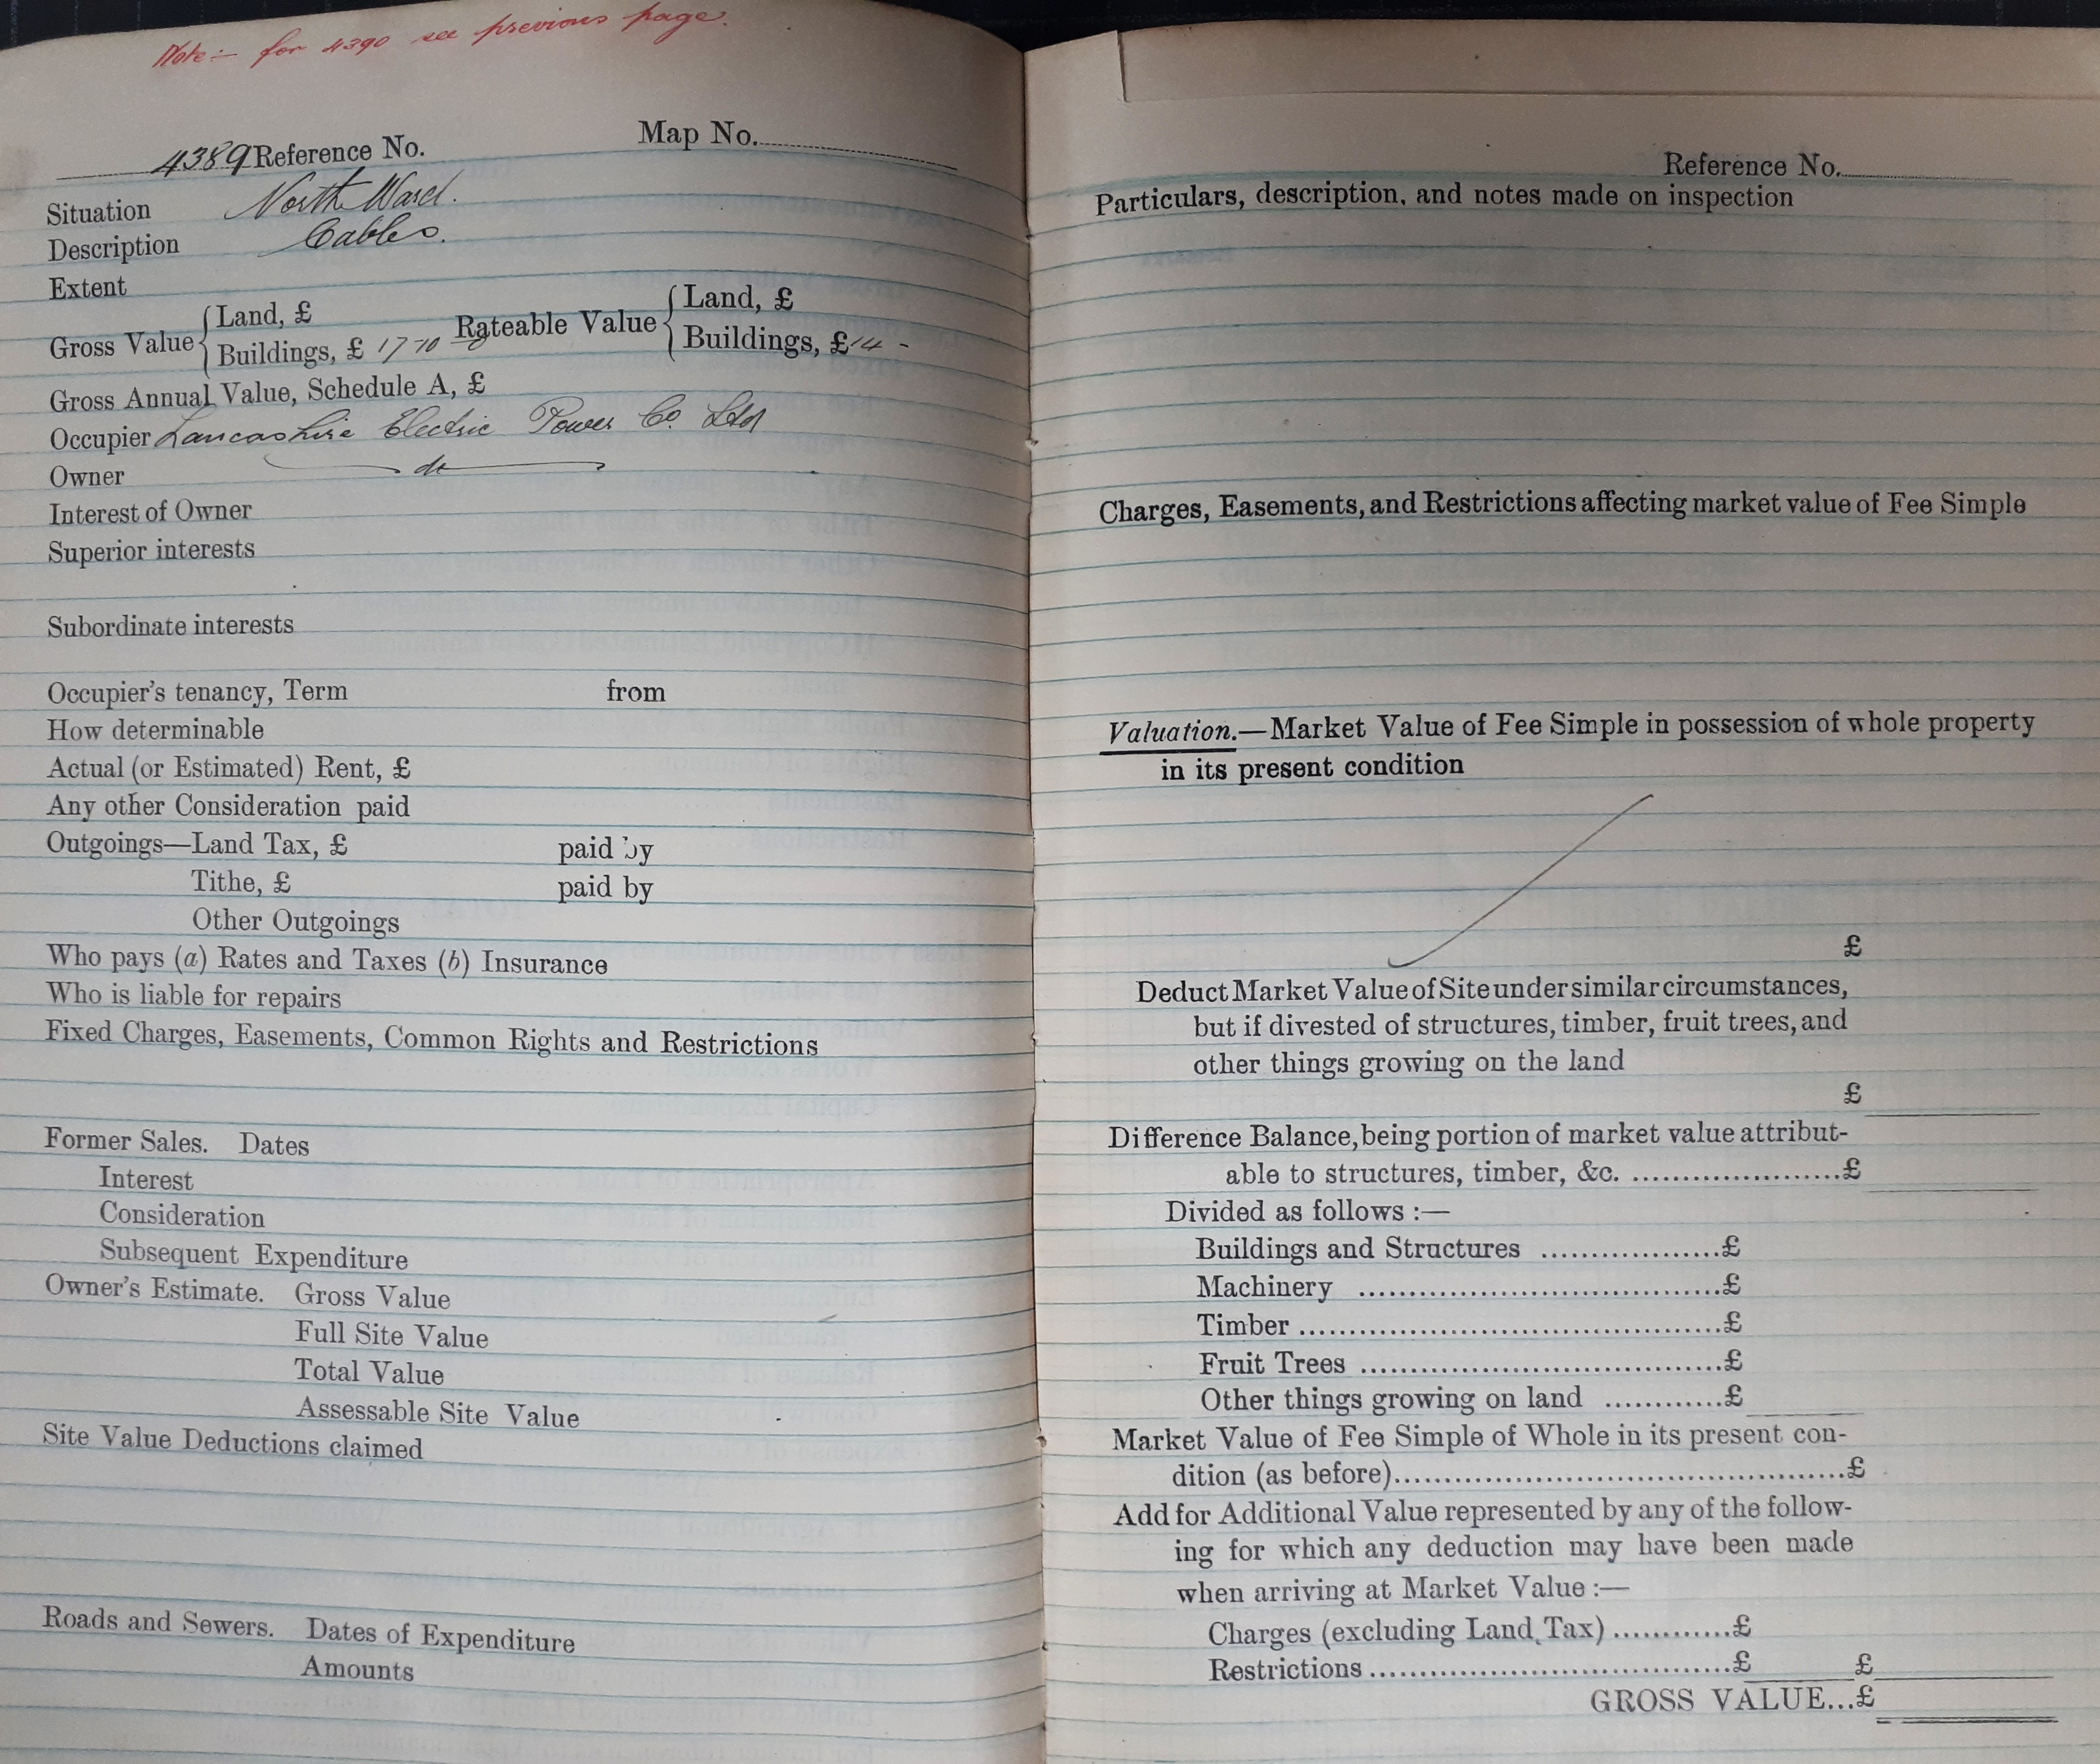 Note:- for 4390 see previous page.
4389 Reference No. Map No.
Situation North Ward.
Description Cables.
Extent
Gross Value { Land, £ Rateable Value { Land, £
Buildings, £ 17-10 Buildings, £ 14 -
Gross Annual Value, Schedule A, £
Occupier Lancashire Electric Power Co. Ltd
Owner do
Interest of Owner
Superior interests
Subordinate interests
Occupier's tenancy, Term from
How determinable
Actual (or Estimated) Rent, £
Any other Consideration paid
Outgoings—Land Tax, £ paid by
Tithe, £ paid by
Other Outgoings
Who pays (a) Rates and Taxes (b) Insurance
Who is liable for repairs
Fixed Charges, Easements, Common Rights and Restrictions
Former Sales. Dates
Interest
Consideration
Subsequent Expenditure
Owner's Estimate. Gross Value
Full Site Value
Total Value
Assessable Site Value
Site Value Deductions claimed
Roads and Sewers. Dates of Expenditure
Amounts
Reference No.
Particulars, description, and notes made on inspection
Charges, Easements, and Restrictions affecting market value of Fee Simple
Valuation.—Market Value of Fee Simple in possession of whole property
in its present condition
£
Deduct Market Value of Site under similar circumstances,
but if divested of structures, timber, fruit trees, and
other things growing on the land
£
Difference Balance, being portion of market value attribut-
able to structures, timber, &c. ......................£
Divided as follows :—
Buildings and Structures ..................£
Machinery ....................................£
Timber ..........................................£
Fruit Trees ....................................£
Other things growing on land ............£
Market Value of Fee Simple of Whole in its present con-
dition (as before).............................................£
Add for Additional Value represented by any of the follow-
ing for which any deduction may have been made
when arriving at Market Value :—
Charges (excluding Land Tax) ............£
Restrictions ....................................£ £
GROSS VALUE...£